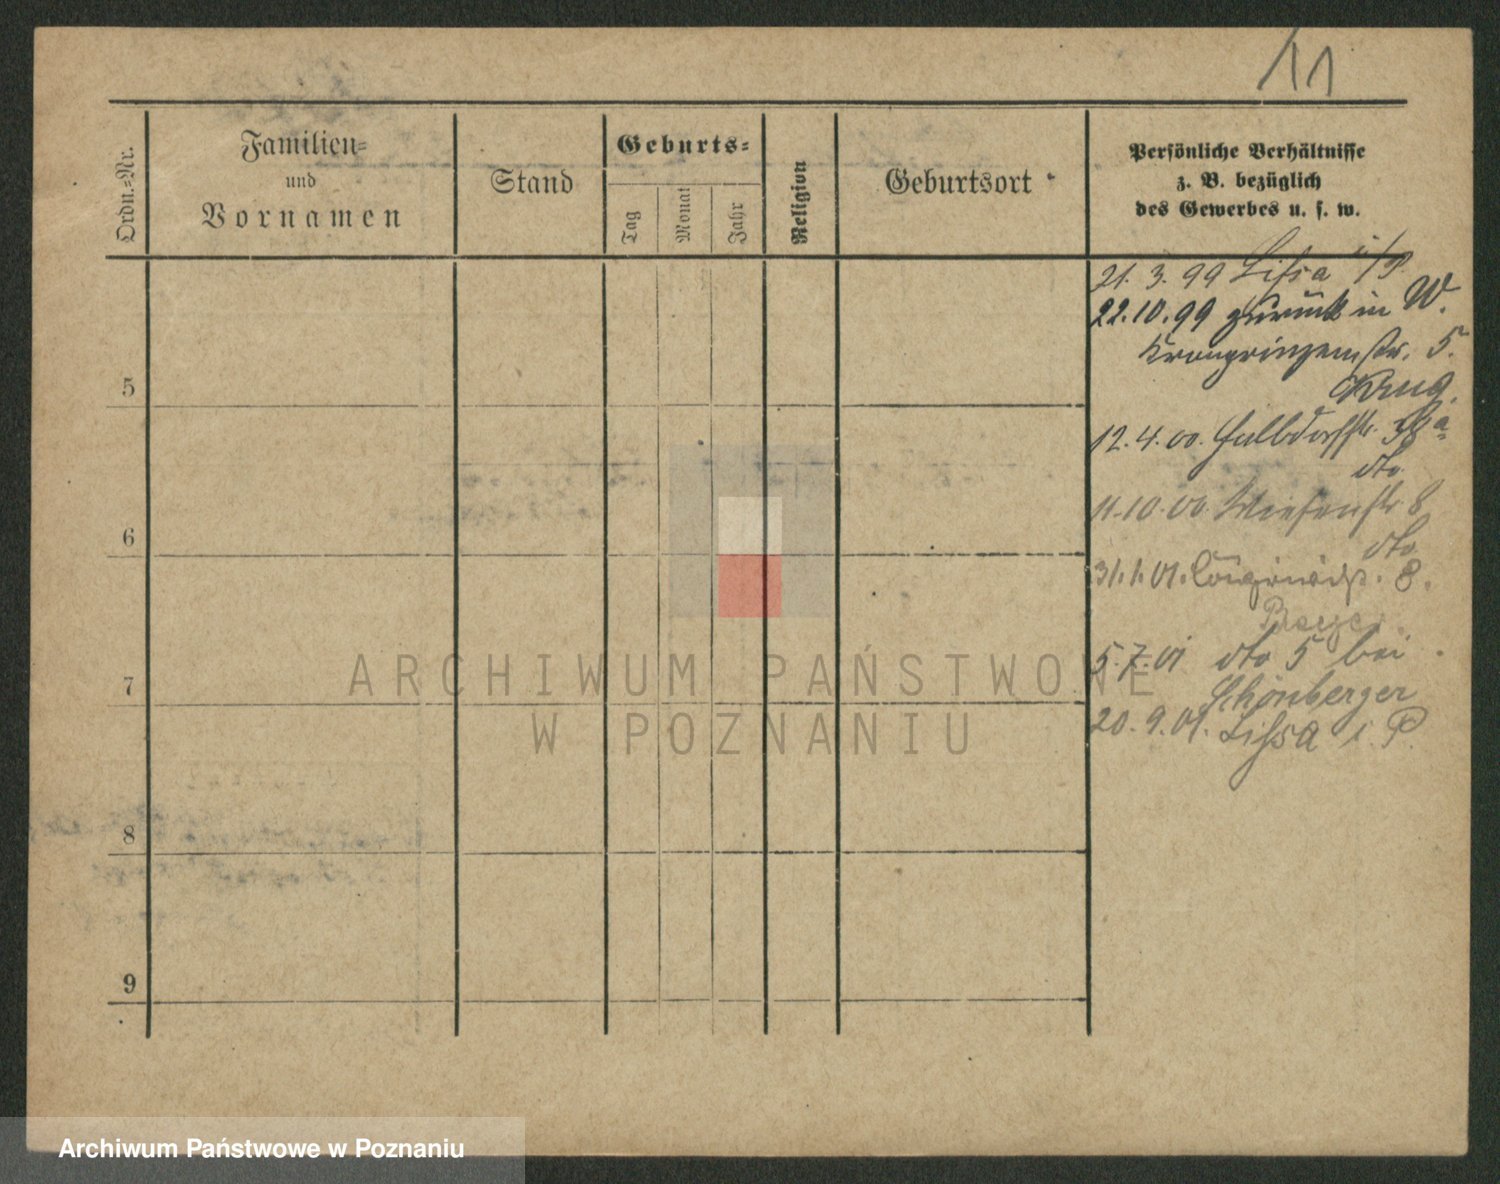 11
Ordn.-Nr.
Familien-
und
Vornamen
Stand
Geburts-
Tag
Monat
Jahr
Religion
Geburtsort
Persönliche Verhältnisse
z. B. bezüglich
des Gewerbes u. s. w.
21. 3. 99 Lissa i/P.
22.10.99 zurück in W.
Kronprinzenstr. 5.
Krug.
12.4.00. Halbdorfstr.
dto
11.10.00. Wiesenstr 8
dto
31.1.01. 8.
5.7.01 dto 5 bei
Schönberger
20.9.01. Lissa i. P.
5
6
7
8
9
ARCHIWUM PAŃSTWOWE
W POZNANIU
Archiwum Państwowe w Poznaniu